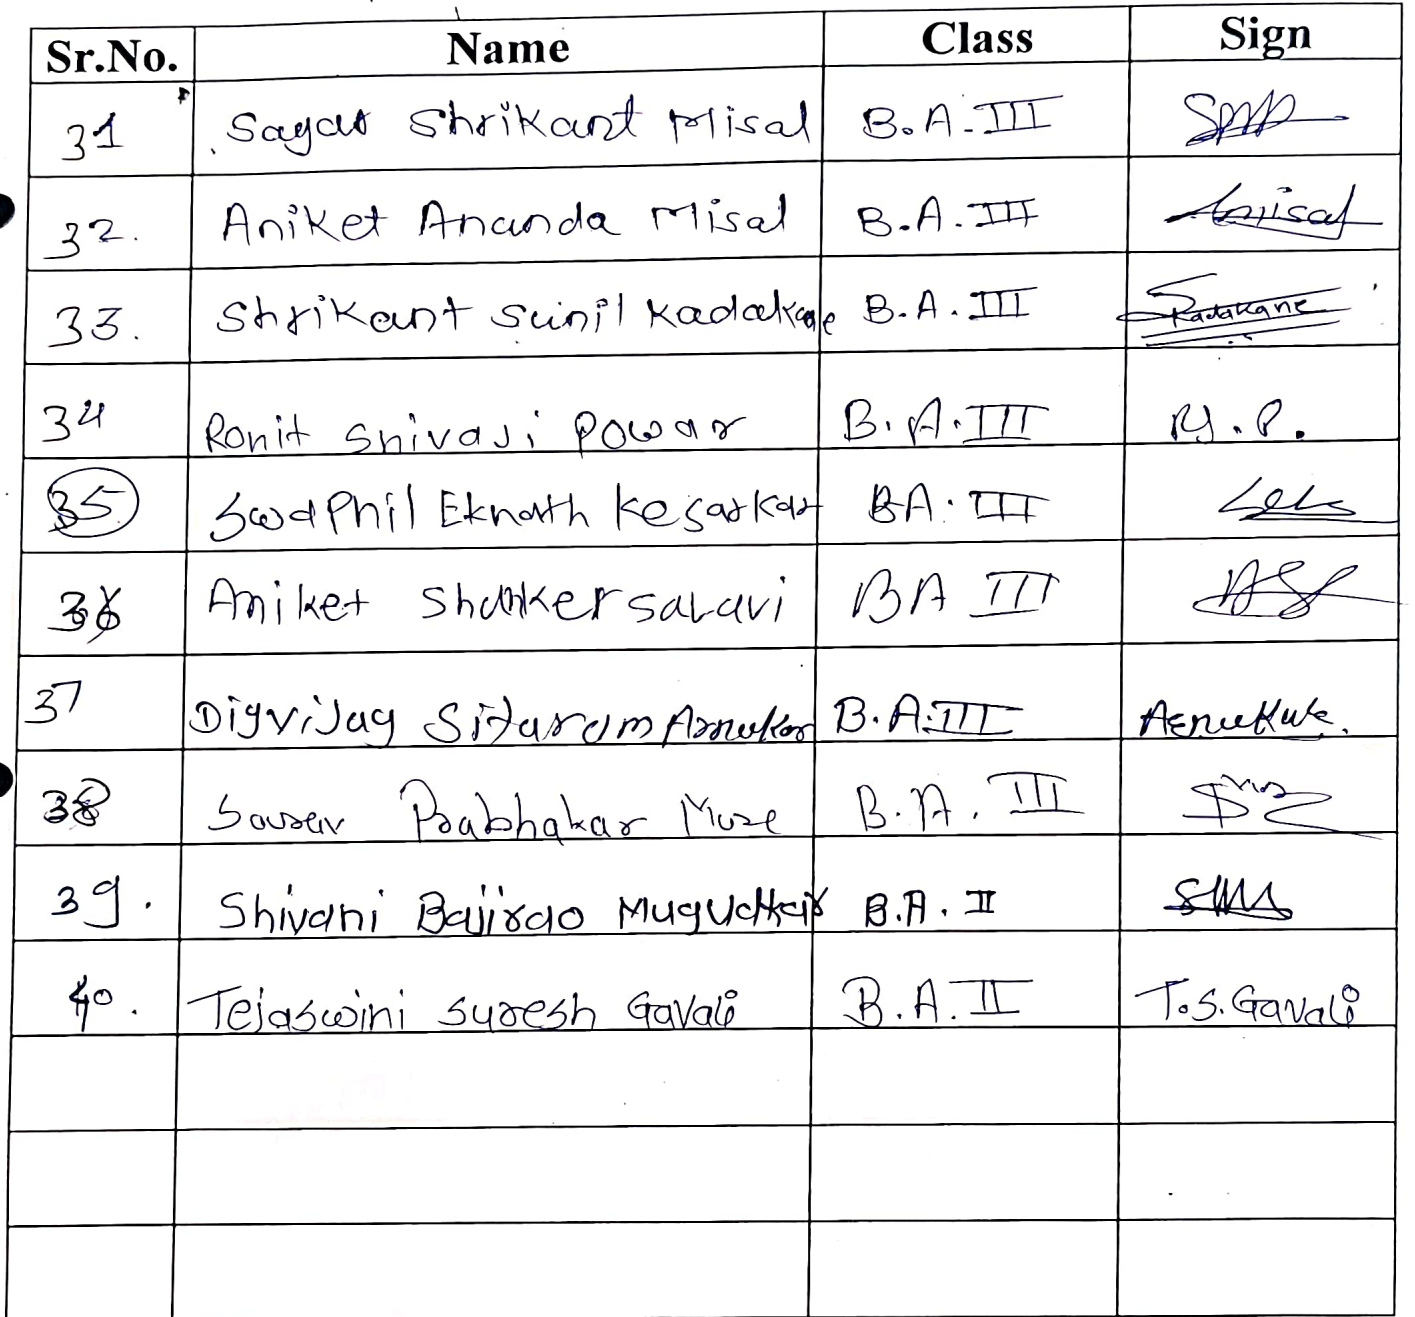 Sr.No. Name Class Sign
31 Sagar Shrikant Misal B.A.III
32. Aniket Ananda Misal B.A.III Amisal
33. Shrikant Sunil Kadakane B.A.III Skadakane
34 Ronit Shivaji Powar B.A.III R.J.P.
35 Swaphil Eknath Kesarkar BA.III
36 Aniket Shanker Salavi BA III
37 Digvijay Sitaram B.A.III
38 Sourav Prabhakar More B.A.III
39. Shivani Bajirao B.A.II
40. Tejaswini Suresh Gavali B.A.II T.S.Gavali